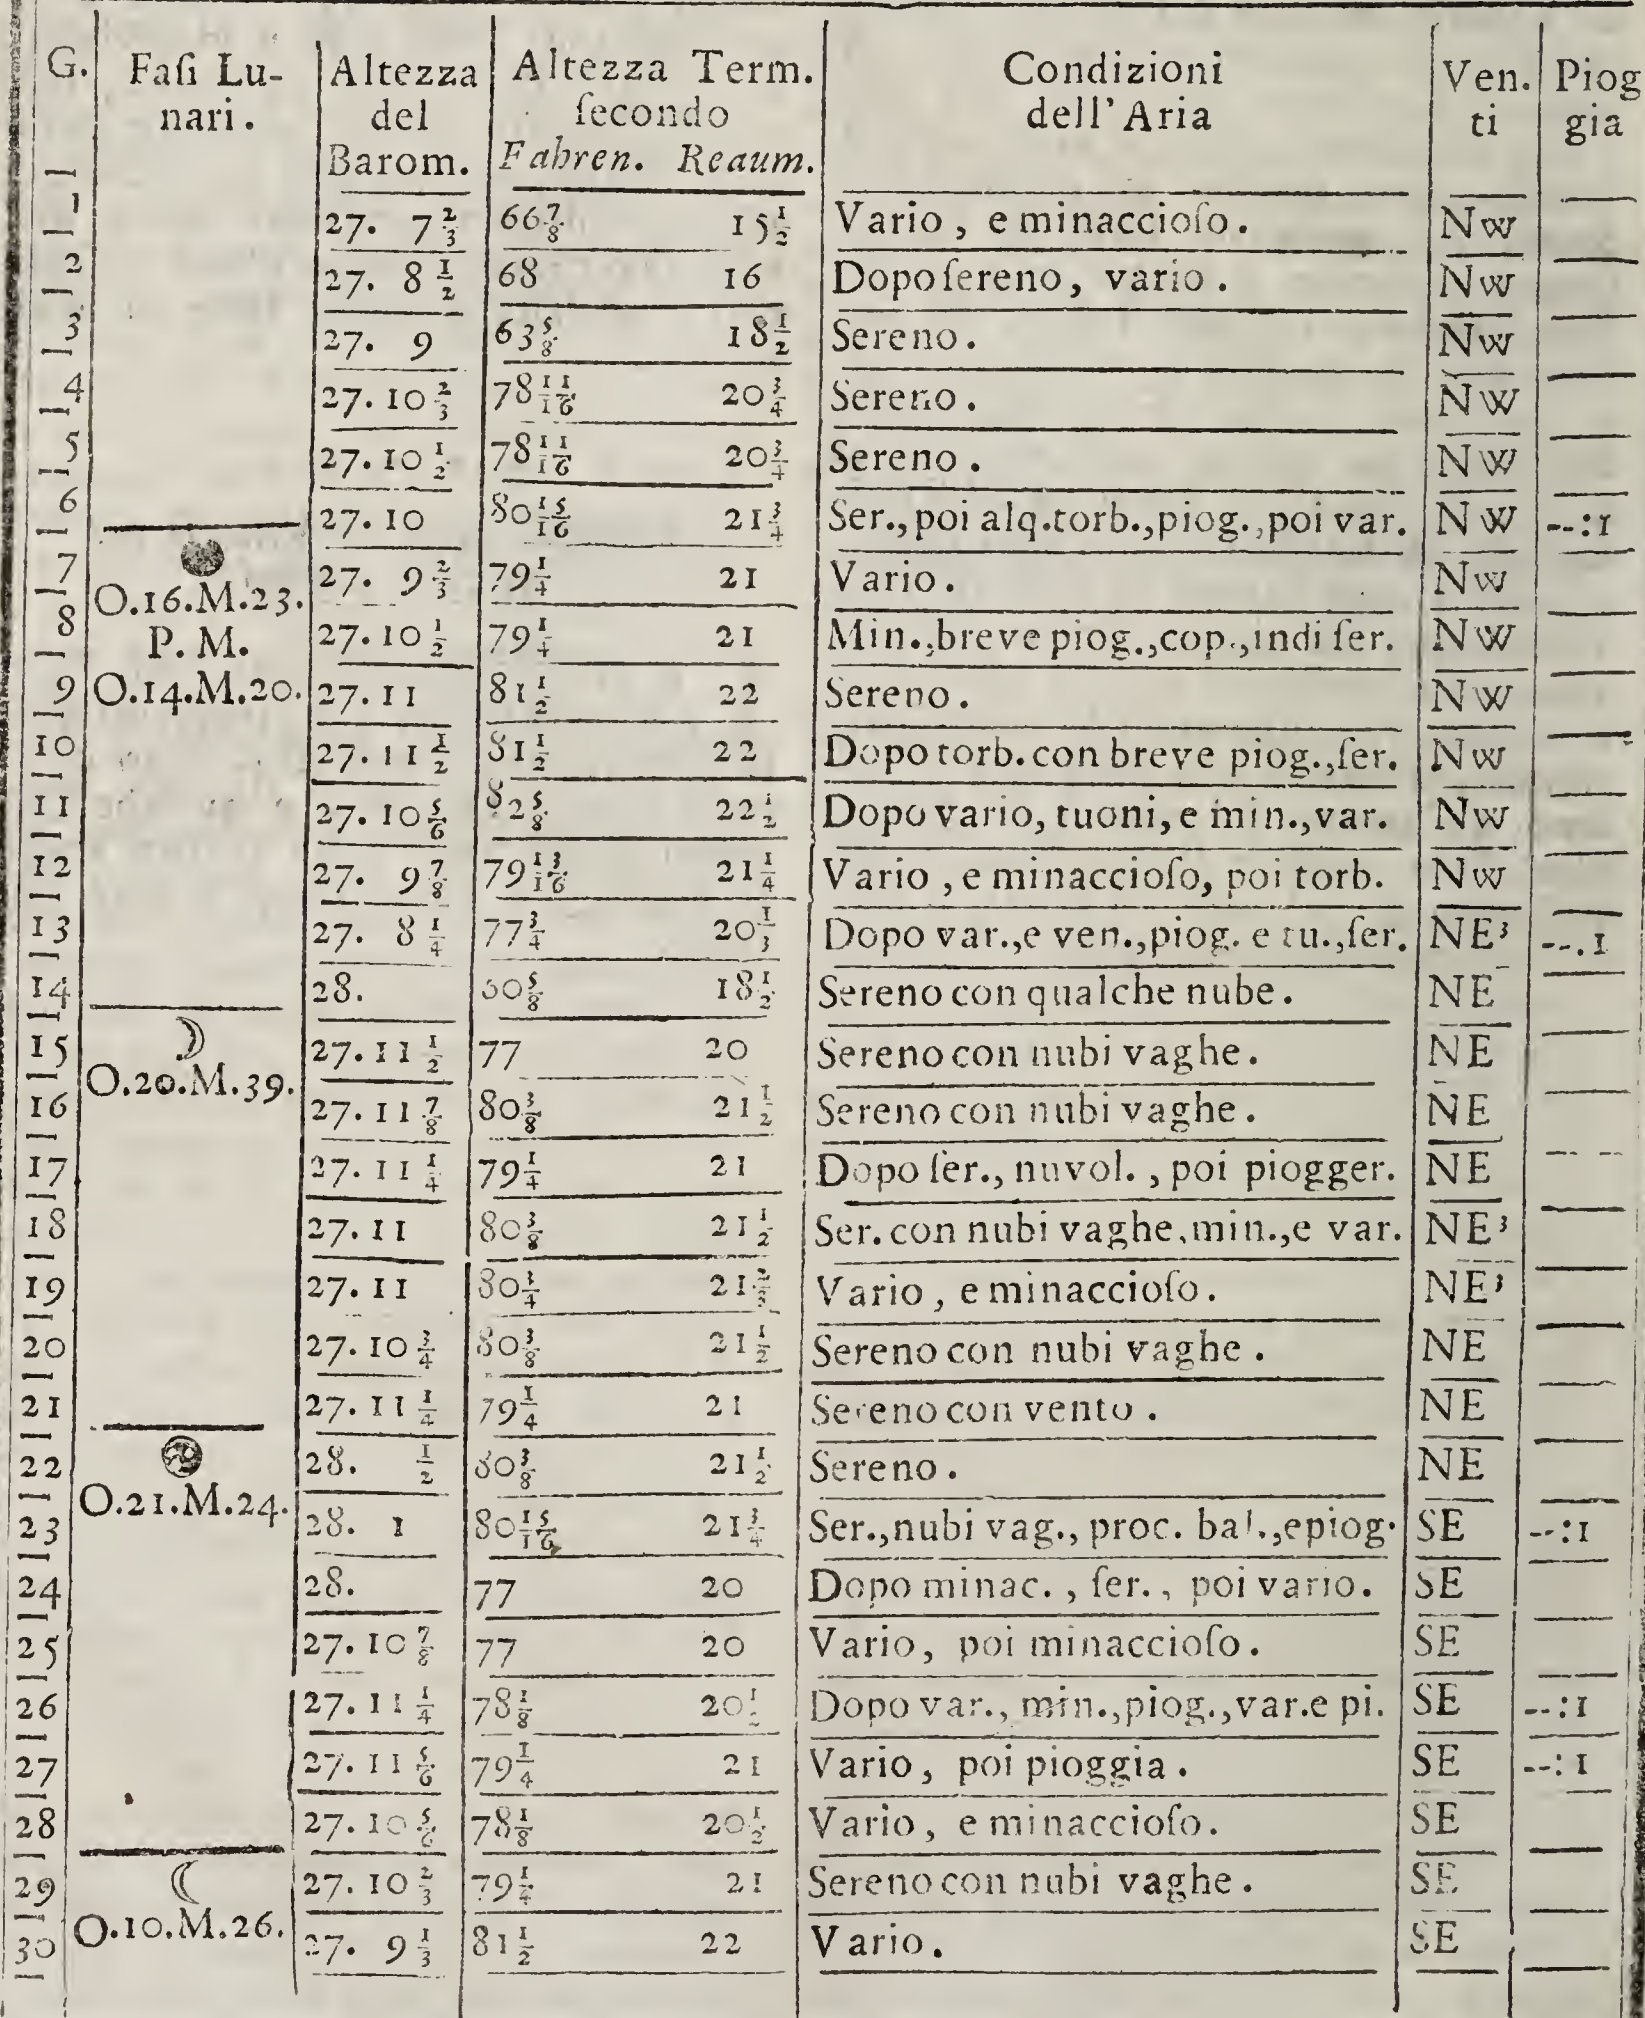 G. Faſi Lu- Altezza Altezza Term. Condizioni Ven. Piog
nari. del ſecondo dell'Aria ti gia
Barom. Fahren. Reaum.
1 27. 7 2/3 66 7/8 15 1/2 Vario, e minaccioſo. Nw
2 27. 8 1/2 68 16 Dopo ſereno, vario. Nw
3 27. 9 63 5/8 18 1/2 Sereno. Nw
4 27. 10 2/3 78 11/16 20 3/4 Sereno. Nw
5 27. 10 1/2 78 11/16 20 3/4 Sereno. Nw
6 27. 10 80 15/16 21 3/4 Ser., poi alq. torb., piog., poi var. Nw --:1
7 27. 9 2/3 79 1/4 21 Vario. Nw
O.16.M.23.
8 P. M. 27. 10 1/2 79 1/4 21 Min., breve piog., cop., indi ſer. Nw
9 O.14.M.20. 27. 11 81 1/2 22 Sereno. Nw
10 27. 11 1/2 81 1/2 22 Dopo torb. con breve piog., ſer. Nw
11 27. 10 5/6 82 5/8 22 1/2 Dopo vario, tuoni, e min., var. Nw
12 27. 9 7/8 79 13/16 21 1/4 Vario, e minaccioſo, poi torb. Nw
13 27. 8 1/4 77 3/4 20 1/3 Dopo var., e ven., piog. e tu., ſer. NE³ --.1
14 28. 5/8 18 1/2 Sereno con qualche nube. NE
15 ☽ 27. 11 1/2 77 20 Sereno con nubi vaghe. NE
O.20.M.39.
16 27. 11 7/8 80 3/8 21 1/2 Sereno con nubi vaghe. NE
17 27. 11 1/4 79 1/4 21 Dopo ſer., nuvol., poi piogger. NE
18 27. 11 80 3/8 21 1/2 Ser. con nubi vaghe, min., e var. NE³
19 27. 11 80 3/4 21 2/3 Vario, e minaccioſo. NE³
20 27. 10 3/4 80 3/8 21 1/2 Sereno con nubi vaghe. NE
21 27. 11 1/4 79 1/4 21 Sereno con vento. NE
22 28. 1/2 80 3/8 21 1/2 Sereno. NE
O.21.M.24.
23 28. 1 80 15/16 21 3/4 Ser., nubi vag., proc. bal., e piog. SE --:1
24 28. 77 20 Dopo minac., ſer., poi vario. SE
25 27. 10 7/8 77 20 Vario, poi minaccioſo. SE
26 27. 11 1/4 78 1/8 20 Dopo var., min., piog., var. e pi. SE --:1
27 27. 11 5/6 79 1/4 21 Vario, poi pioggia. SE --:1
28 27. 10 5/6 78 1/8 20 1/2 Vario, e minaccioſo. SE
29 ☾ 27. 10 2/3 79 1/4 21 Sereno con nubi vaghe. SE
O.10.M.26.
30 27. 9 1/3 81 1/2 22 Vario. SE